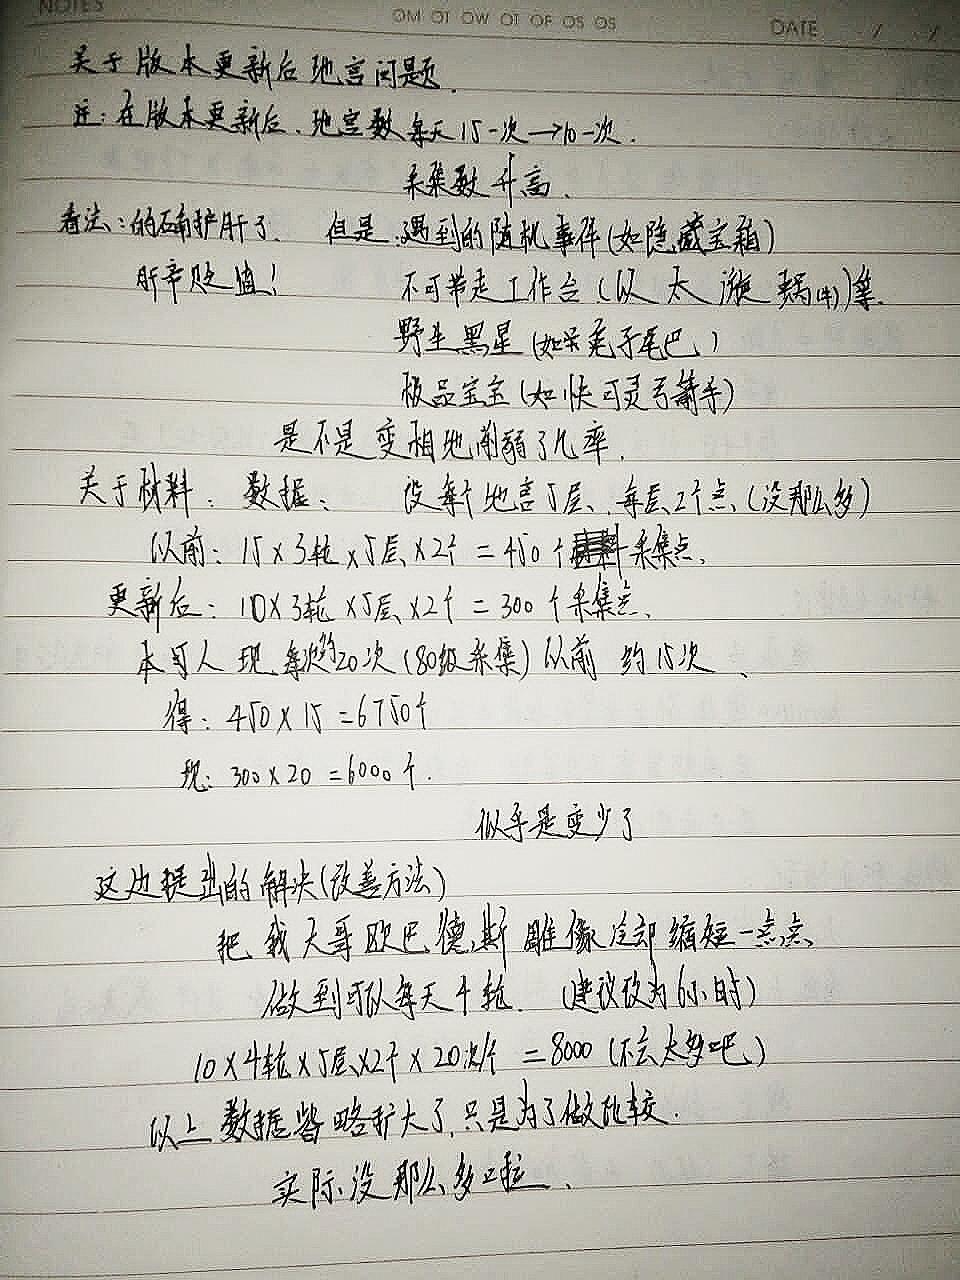 NOTES
OM OT OW OT OF OS OS
DATE / /
关于版本更新后地宫问题.
注:在版本更新后、地宫数每天15一次→10一次.
采集数升高.
看法:的确护肝了. 但是:遇到的随机事件(如隐藏宝箱)
肝帝贬值! 不可带走工作台(以太漩蜗(牛))等.
野生黑星(如呆毛子尾巴)
极品宝宝(如快可灵弓箭手)
是不是变相地削弱了几率.
关于材料: 数据: 设每个地宫5层、每层2个点、(没那么多)
以前:15×3轮×5层×2个=450个采集点.
更新后:10×3轮×5层×2个=300个采集点、
本可人现每次约20次(80级采集)以前约15次、
得:450×15=6750个
现:300×20=6000个.
似乎是变少了
这边提出的解决(改善方法)
把我大哥欧巴德斯雕像冷却缩短一点点、
做到可以每天4轮. (建议改为6小时)
10×4轮×5层×2个×20次/个=8000(不会太多吧)
以上数据皆略扩大了,只是为了做比较.
实际没那么多啦、